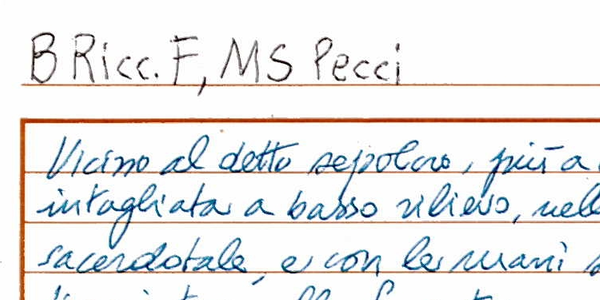 B Ricc. F, MS Pecci
Vicino al detto sepolcro, più a
intagliata a basso rilievo, nell
sacerdotale, e con le mani